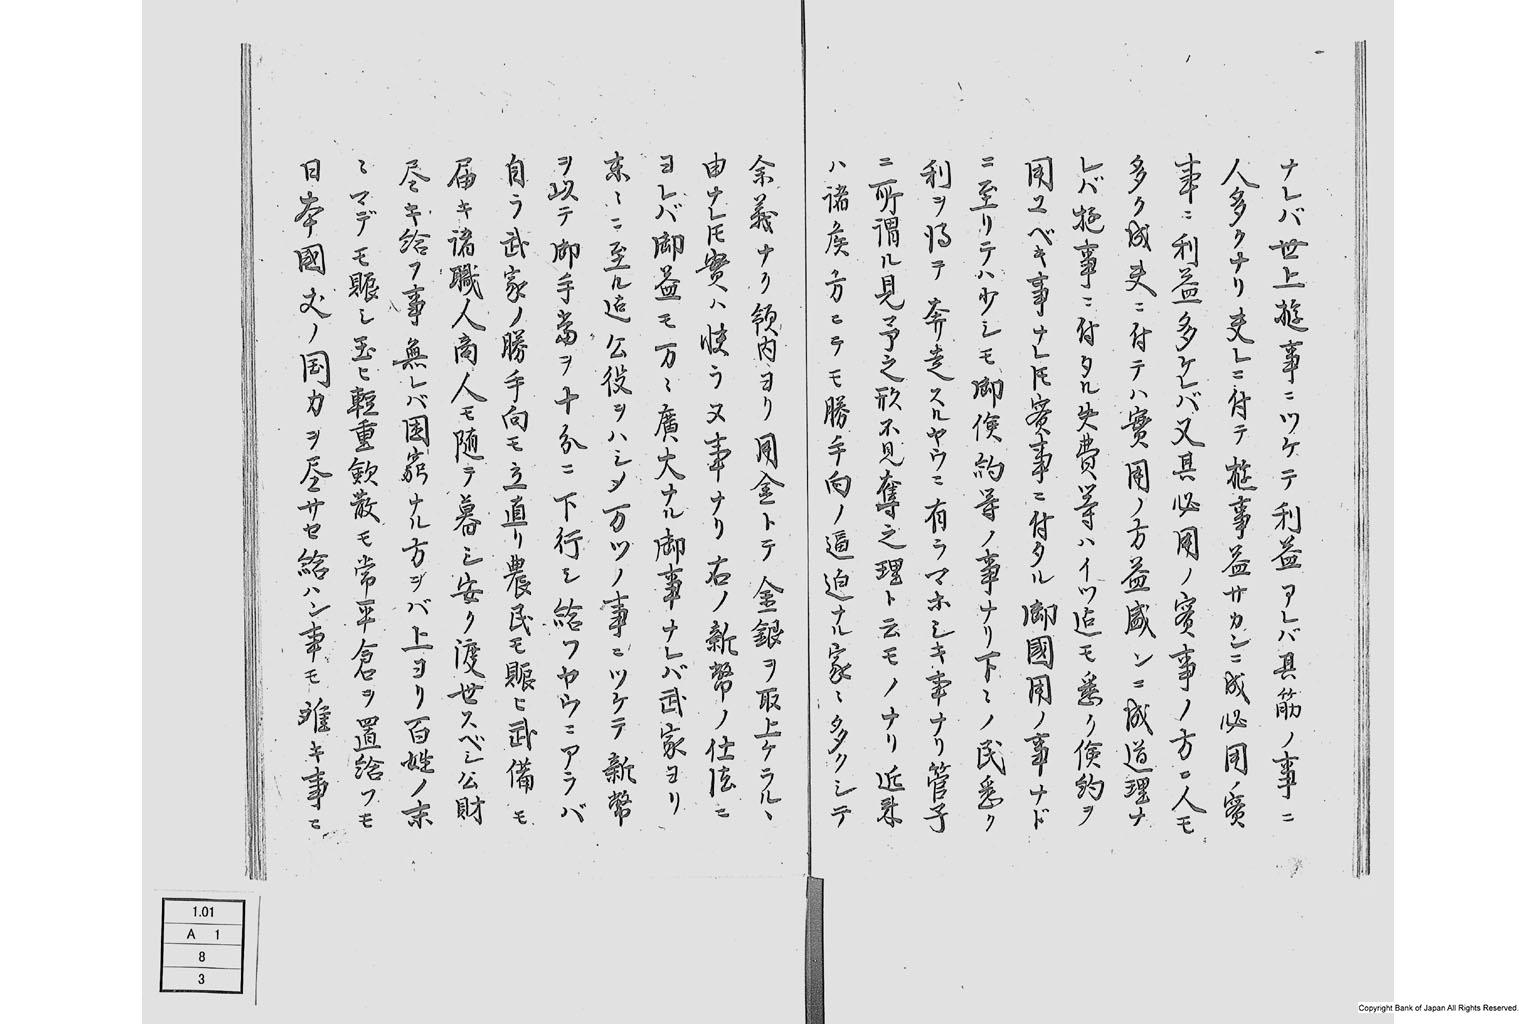 ナレバ世上遊事ニツケテ利益アレバ其筋ノ事ニ
人多クナリ夫レニ付テ遊事益サカンニ成必用ノ實
事ニ利益多ケレバ又其必用ノ實事ノ方ニ人モ
多ク成夫ニ付テハ實用ノ方益盛ンニ成道理ナ
レバ遊事ニ付タル失費等ハイツ迠モ悉ク倹約ヲ
用ユベキ事ナレ𪜈實事ニ付タル御國用ノ事ナド
ニ至リテハ少シモ御倹約等ノ事ナリ下ミノ民悉ク
利ヲ得テ奔走スルヤウニ有ラマホシキ事ナリ管子
ニ所謂ル見予之形不見奪之理ト云モノナリ近来
ハ諸侯方ニテモ勝手向ノ逼迫ナル家ミ多クシテ
余義ナク領内ヨリ用金トテ金銀ヲ取上ケラルヽ
由ナレ𪜈實ハ快ラヌ事ナリ右ノ新幣ノ仕法ニ
ヨレバ御益モ万ミ廣大ナル御事ナレバ武家ヨリ
末ミニ至ル迠公役ヲハシメ万ツノ事ニツケテ新幣
ヲ以テ御手當ヲ十分ニ下行シ給フヤウニアラバ
自ラ武家ノ勝手向モ立直リ農民モ賑ヒ武備モ
届キ諸職人商人モ随テ暮シ安ク渡世スベシ公財
尽キ給フ事無レバ困窮ナル方ヲバ上ヨリ百姓ノ末
ミマデモ賑シ玉ヒ輕重斂散モ常平倉ヲ置給フモ
日本國丈ノ国力ヲ尽サセ給ハン事モ難キ事ニ
1.01
A 1
8
3
Copyright Bank of Japan All Rights Reserved.